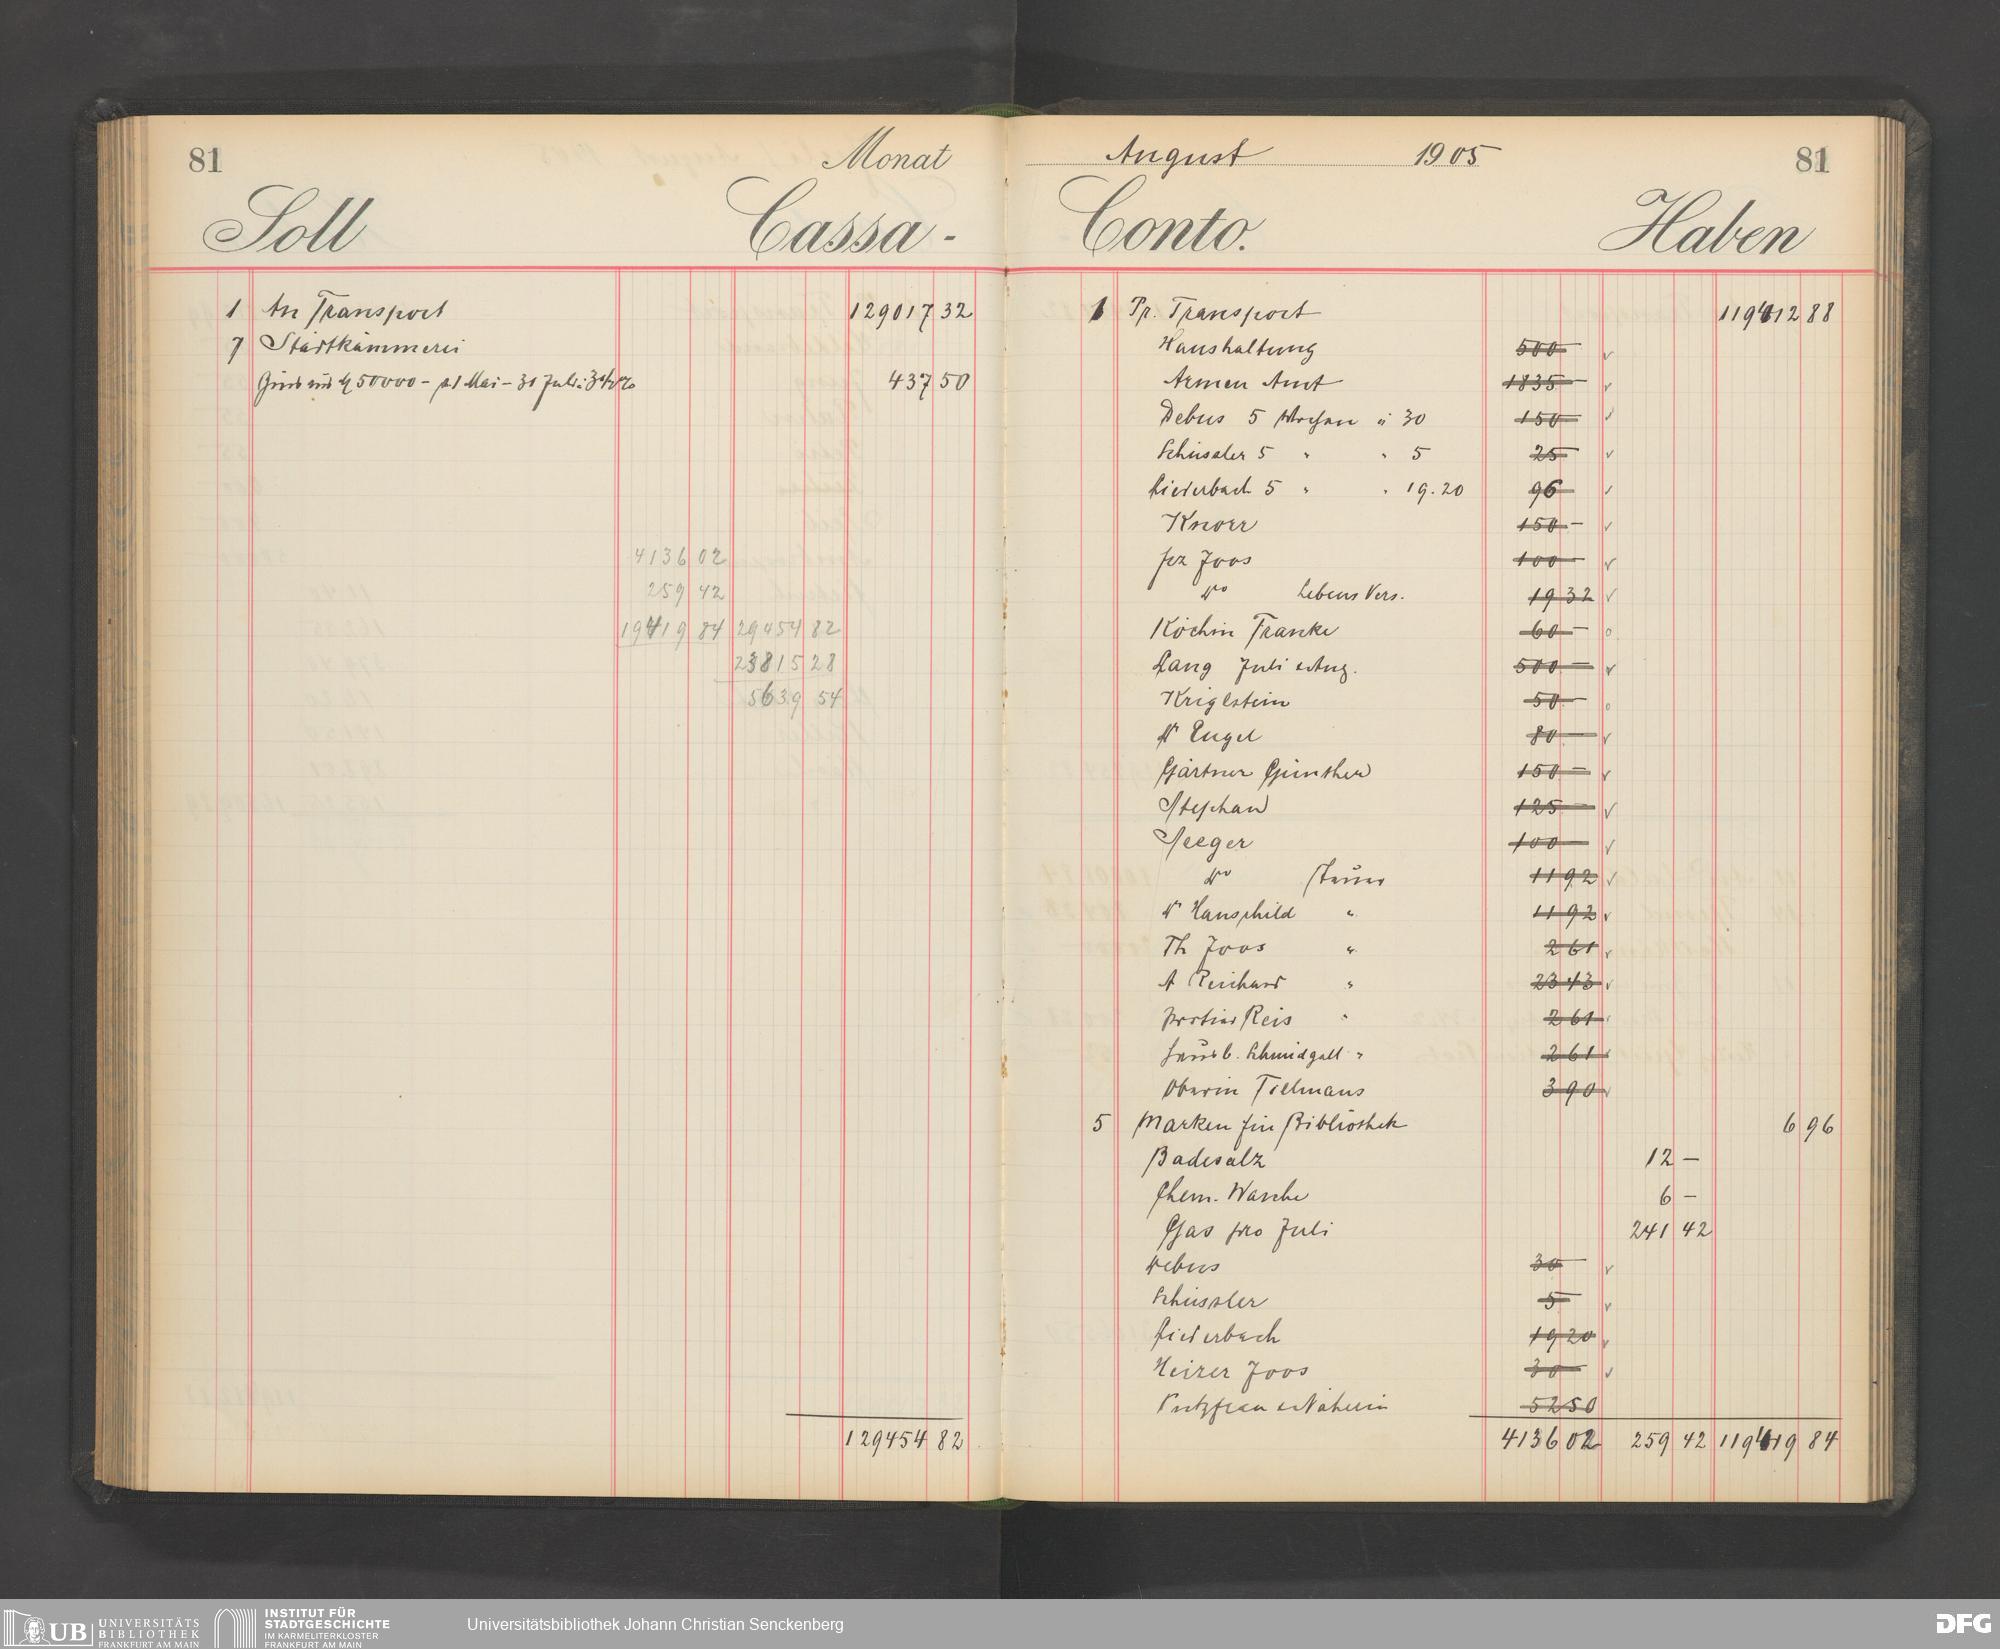 81 Monat
Soll Cassa-
1 An Transport 129017 32
7 Stadtkämmerei
50000 – 1 Mai – 31 Juli 3½% 437 50
4136 02
259 42
19419 84 29454 82
23815 28
5639 54
129454 82
August 1905 81
Conto. Haben
1 Pr. Transport 119412 88
Haushaltung 500 –
Armen Amt 1835 –
Debus 5 Wochen à 30 150 –
Schüssler 5 " " 5 25 –
Liederbach 5 " " 19.20 96 –
Knorr 150 –
Joos 100 –
do Lebens Vers. 19 32
Köchin Franke 60 –
Lang Juli & Aug. 500 –
Kriglstein 50 –
Dr Engel 80 –
Gärtner Günther 150 –
Stephan 125 –
Seeger 100 –
do Steuer 11 92
Dr Hanschild " 11 92
Th Joos " 2 61
A Reichard " 23 43
Portier Reis " 2 61
Hausb. Schmidgall " 2 61
Oberin Tillmans 3 90
5 Marken für Bibliothek 6 96
Badesalz 12 –
Chem. Wäsche 6 –
Gas pro Juli 241 42
Debus 30 –
Schüssler 5 –
Liederbach 19 20
Heizer Joos 30 –
Putzfrau & Näherin 52 50
4136 02 259 42 119419 84
UB UNIVERSITÄTS
BIBLIOTHEK
FRANKFURT AM MAIN
INSTITUT FÜR
STADTGESCHICHTE
IM KARMELITERKLOSTER
FRANKFURT AM MAIN
Universitätsbibliothek Johann Christian Senckenberg
DFG